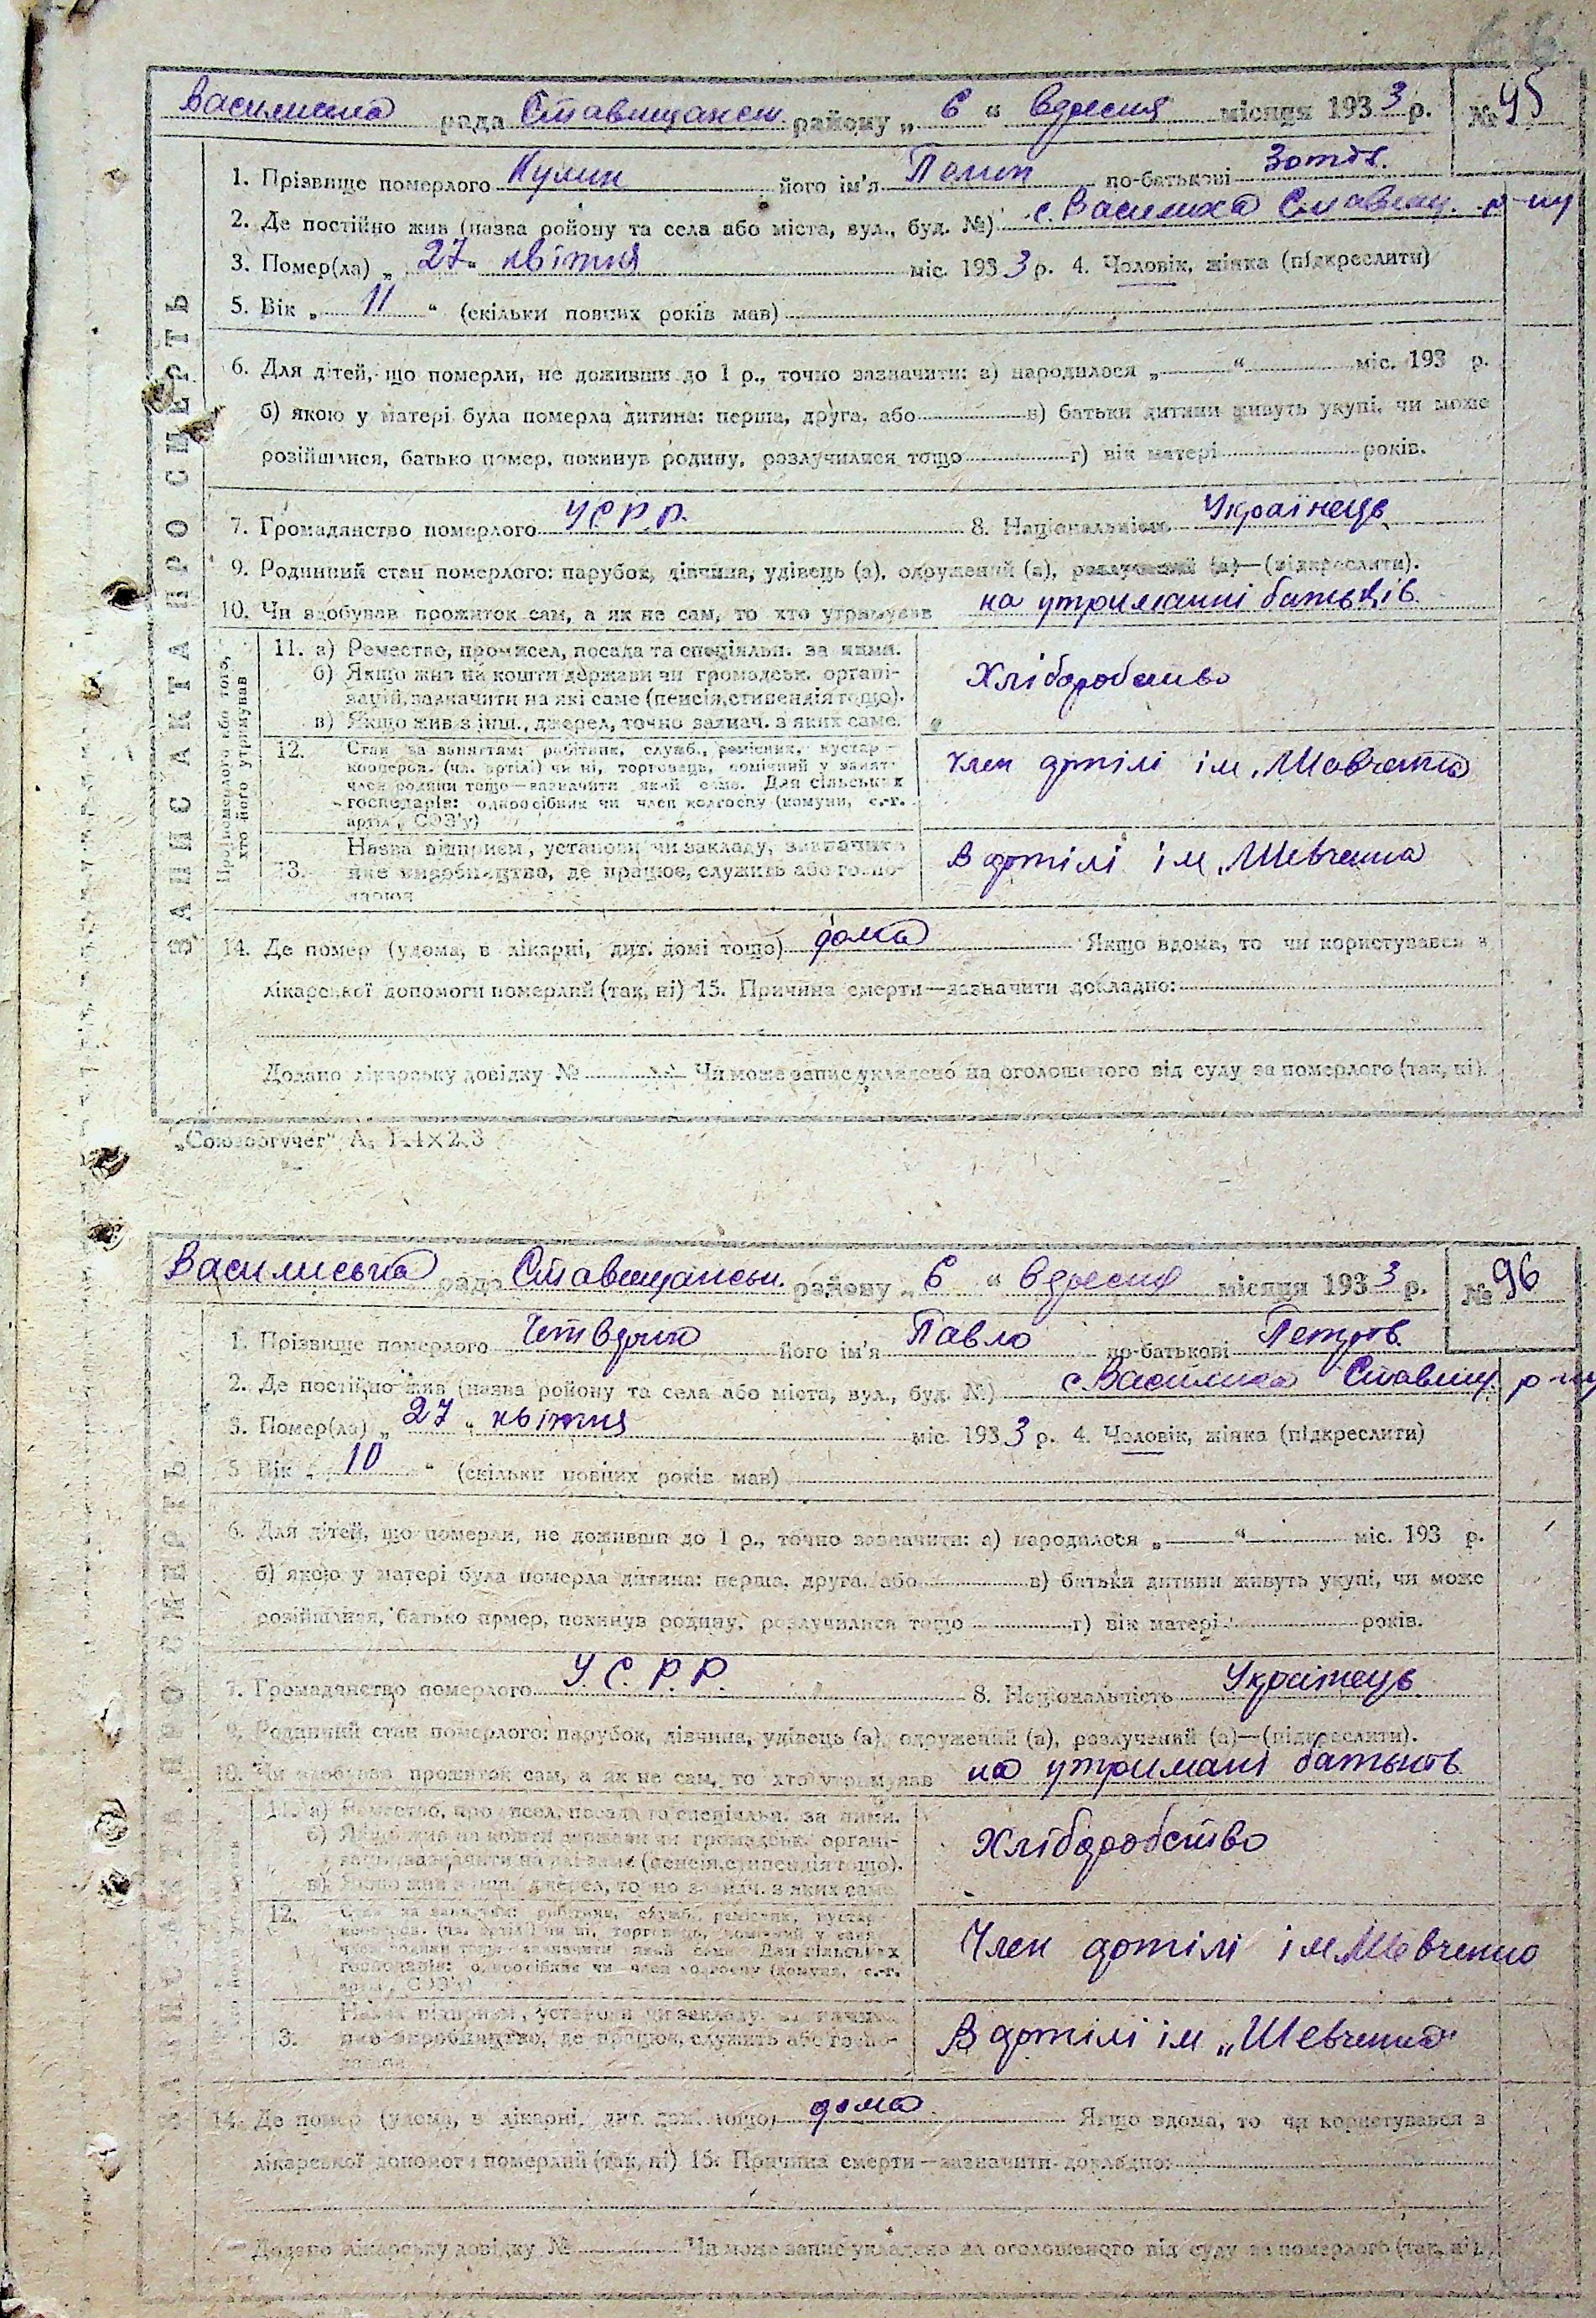 66
Василиська рада Ставищанськ району „ 6 “ вдресня місяця 1933 р. № 95
1. Прізвище померлого Кулик його ім'я по-батькові Зотов.
2. Де постійно жив (назва ройону та села або міста, вул., буд. №) с. Василиха Ставищ. р-ну
3. Помер(ла) „ 27 “ квітня міс. 1933 р. 4. Чоловік, жінка (підкреслити)
5. Вік „ 11 “ (скільки повних років мав)
6. Для дітей, що померли, не доживши до 1 р., точно зазначити: а) народилося „ “ міс. 193 р.
б) якою у матері була померла дитина: перша, друга, або в) батьки дитини живуть укупі, чи може
розійшлися, батько помер, покинув родину, розлучилися тощо г) вік матері років.
7. Громадянство померлого УСРР. 8. Національність Українець
9. Родинний стан померлого: парубок, дівчина, удівець (а), одружений (а), розлучений (а)—(підкреслити).
10. Чи здобував прожиток сам, а як не сам, то хто утримував на утриманні батьків
ЗАПИС АКТА ПРО СМЕРТЬ
Про померлого або того,
хто його утримував
11. а) Ремество, промисел, посада та спеціяльн. за ними.
б) Якщо жив на кошти держави чи громадськ. органі-
зацій, зазначити на які саме (пенсія, стипендія тощо).
в) Якщо жив з інш., джерел, точно зазнач. з яких саме.
Хліборобство
12. Стан за заняттям: робітник, служб., ремісник, кустар—
кооперов. (чл. артілі) чи ні, торговець, помічний у занят.
член родини тощо—зазначити який саме. Для сільських
господарів: одноосібник чи член колгоспу (комуни, с.-г.
артіл., СОЗ'у)
член артілі ім. Шевченка
13. Назва підприєм., установи чи закладу, зазначити
яке виробництво, де працює, служить або госпо-
дарює
В артілі ім. Шевченка
14. Де помер (удома, в лікарні, дит. домі тощо) дома Якщо вдома, то чи користувався з
лікарської допомоги померлий (так, ні) 15. Причина смерти—зазначити докладно:
Додано лікарську довідку № Чи може запис укладено на оголошеного від суду за померлого (так, ні).
„Союзоргучет“
Василиська рада Ставищанськ. району „ 6 “ вдресня місяця 1933 р. № 96
1. Прізвище померлого його ім'я Павло по-батькові Петров.
2. Де постійно жив (назва ройону та села або міста, вул., буд. №) с. Василиха Ставищ. р-ну
3. Помер(ла) „ 27 “ квітня міс. 1933 р. 4. Чоловік, жінка (підкреслити)
5. Вік „ 10 “ (скільки повних років мав)
6. Для дітей, що померли, не доживши до 1 р., точно зазначити: а) народилося „ “ міс. 193 р.
б) якою у матері була померла дитина: перша, друга, або в) батьки дитини живуть укупі, чи може
розійшлися, батько помер, покинув родину, розлучилися тощо г) вік матері років.
7. Громадянство померлого У.С.Р.Р. 8. Національність Українець
9. Родинний стан померлого: парубок, дівчина, удівець (а), одружений (а), розлучений (а)—(підкреслити).
10. Чи здобував прожиток сам, а як не сам, то хто утримував на утримані батьків
ЗАПИС АКТА ПРО СМЕРТЬ
11. а) Ремество, промисел, посада та спеціяльн. за ними.
б) Якщо жив на кошти держави чи громадськ. органі-
зацій, зазначити на які саме (пенсія, стипендія тощо).
в) Якщо жив з інш., джерел, точно зазнач. з яких саме
Хліборобство
12. Стан за заняттям: робітник, служб., ремісник, кустар—
кооперов. (чл. артілі) чи ні, торговець, помічний у занят.
член родини тощо—зазначити який саме. Для сільських
господарів: одноосібник чи член колгоспу (комуни, с.-г.
артіл., СОЗ'у)
Член артілі ім Шевченко
13. Назва підприєм., установи чи закладу, зазначити
яке виробництво, де працює, служить або госпо-
дарює
В артілі ім „Шевченка“
14. Де помер (удома, в лікарні, дит. домі тощо) дома. Якщо вдома, то чи користувався з
лікарської допомоги померлий (так, ні) 15. Причина смерти—зазначити докладно:
Додано лікарську довідку № Чи може запис укладено на оголошеного від суду за померлого (так, ні).